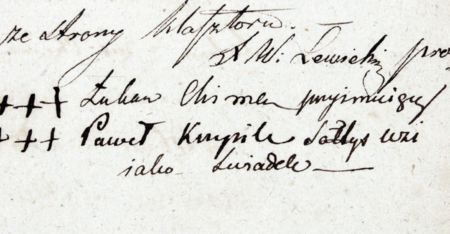 ze strony Klasztoru.
X W: Lewicki pro
+++ Łukan Chimen przyimuięcy
+++ Paweł Krupik Sołtys uzi
iako Swiadek —